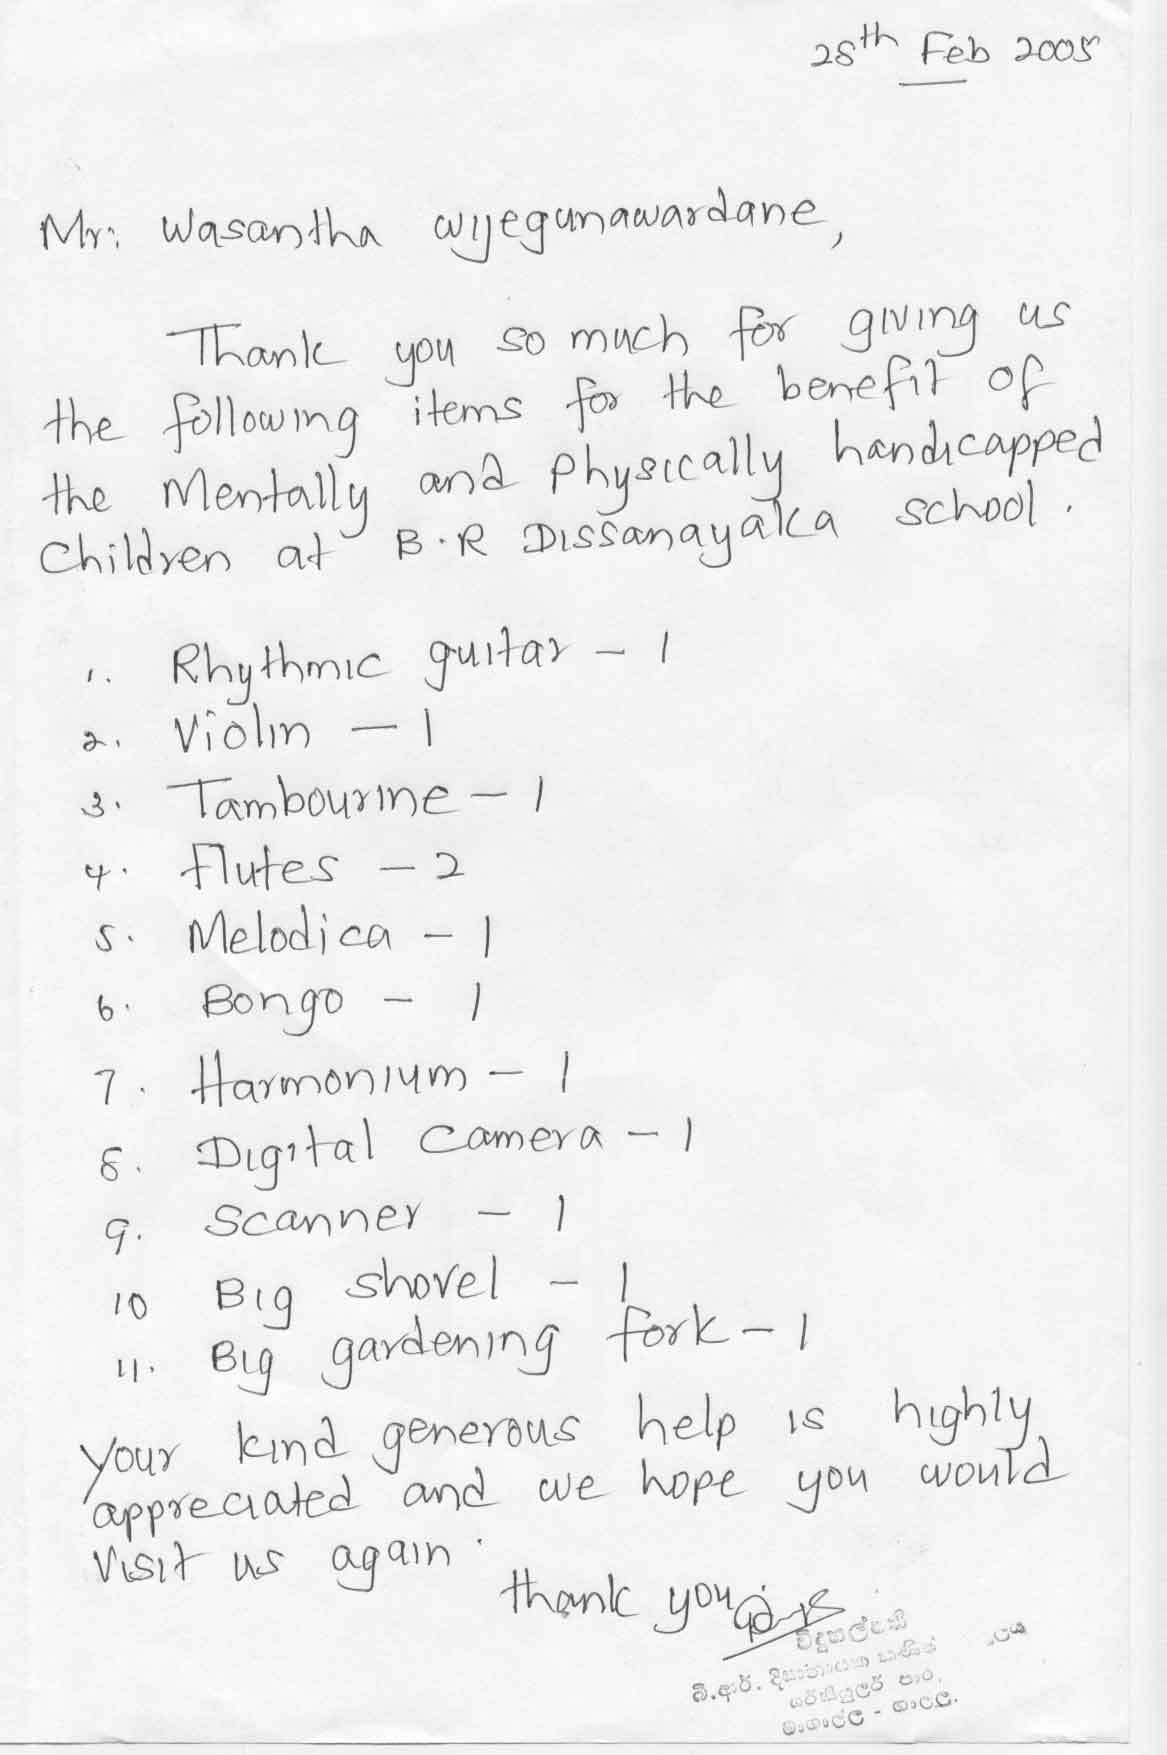 28th Feb 2005
Mr. Wasantha Wijegunawardane,
Thank you so much for giving us
the following items for the benefit of
the Mentally and Physically handicapped
Children at B.R Dissanayaka school.
1. Rhythmic guitar - 1
2. Violin - 1
3. Tambourine - 1
4. flutes - 2
5. Melodica - 1
6. Bongo - 1
7. Harmonium - 1
8. Digital Camera - 1
9. Scanner - 1
10 Big shovel - 1
11. Big gardening fork - 1
Your kind generous help is highly
appreciated and we hope you would
visit us again.
thank you
විදුහල්පති
බී.ආර්. දිසානායක
සර්කියුලර් පාර,
මාගාල්ල - ගාල්ල.